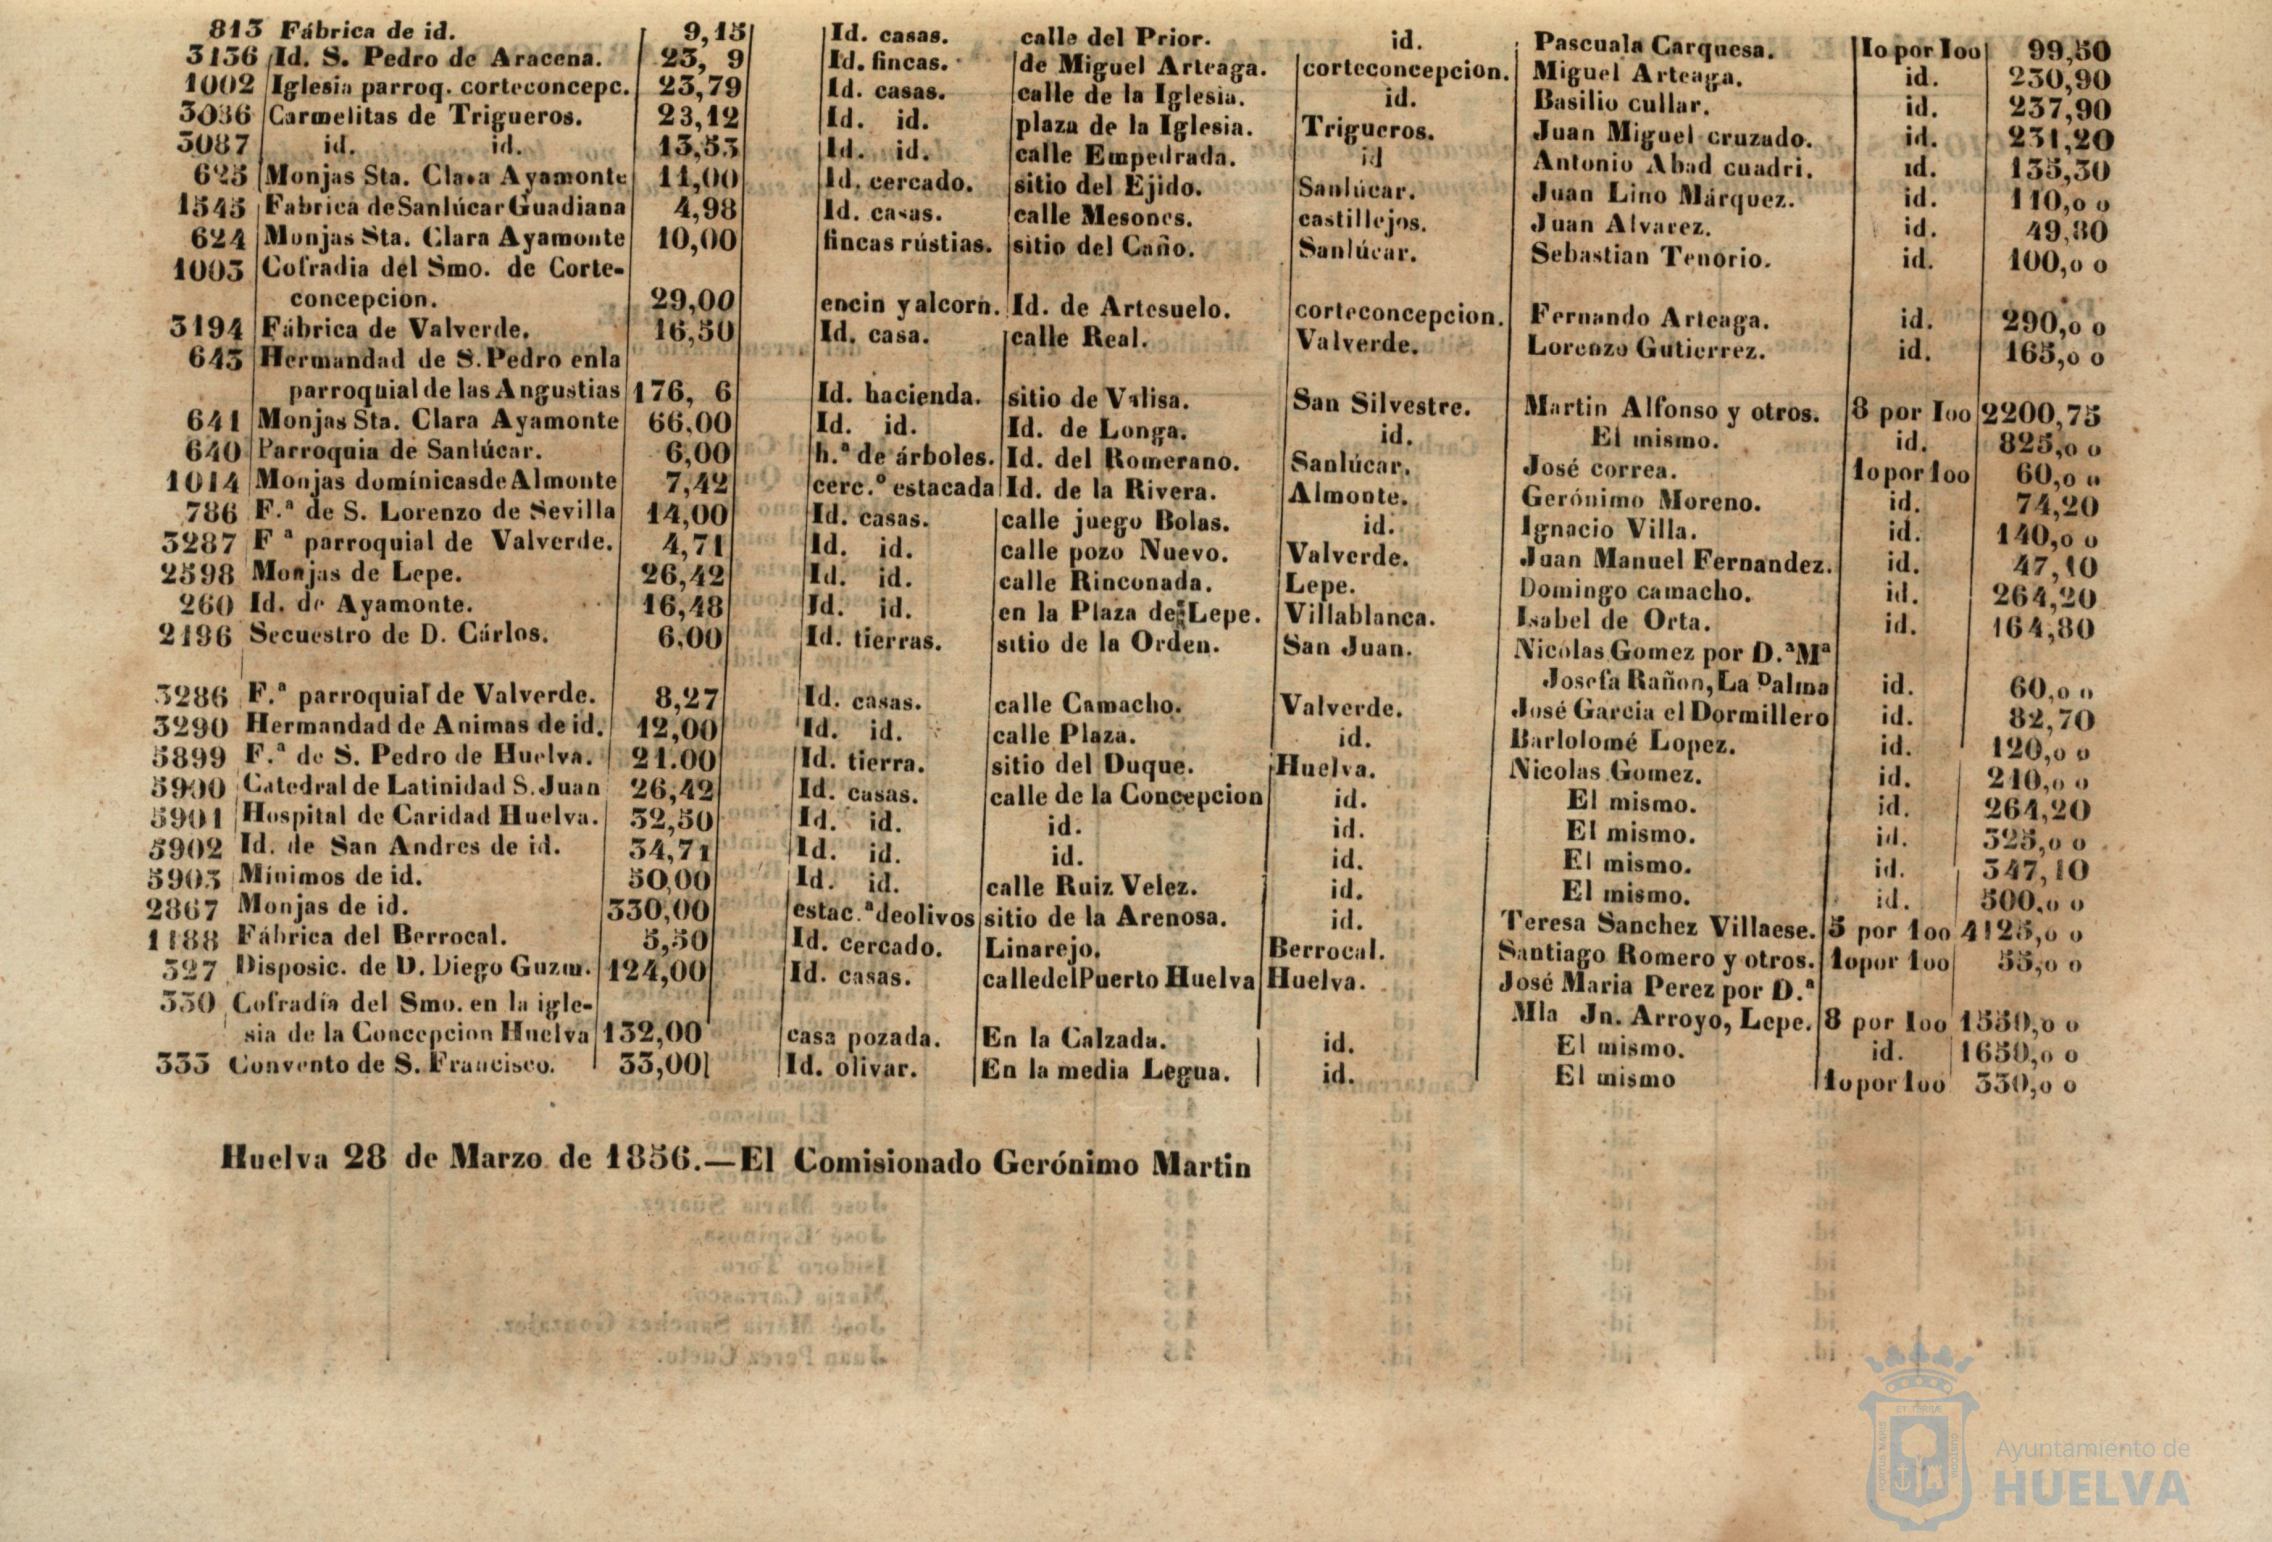 813 Fábrica de id. 9,15 Id. casas. calle del Prior. id. Pascuala Carquesa. 1o por 1oo 99,50
3136 Id. S. Pedro de Aracena. 23, 9 Id. fincas. de Miguel Arteaga. corteconcepcion. Miguel Arteaga. id. 230,90
1002 Iglesia parroq. corteconcepc. 23,79 Id. casas. calle de la Iglesia. id. Basilio cullar. id. 237,90
3036 Carmelitas de Trigueros. 23,12 Id. id. plaza de la Iglesia. Trigueros. Juan Miguel cruzado. id. 231,20
3087 id. id. 13,53 Id. id. calle Empedrada. id Antonio Abad cuadri. id. 135,30
625 Monjas Sta. Clara Ayamonte 11,00 Id. cercado. sitio del Ejido. Sanlúcar. Juan Lino Márquez. id. 110,o o
1545 Fabrica de Sanlúcar Guadiana 4,98 Id. casas. calle Mesones. castillejos. Juan Alvarez. id. 49,80
624 Monjas Sta. Clara Ayamonte 10,00 fincas rústias. sitio del Caño. Sanlúcar. Sebastian Tenorio. id. 100,o o
1003 Cofradia del Smo. de Corte-
concepcion. 29,00 encin y alcorn. Id. de Artesuelo. corteconcepcion. Fernando Arteaga. id. 290,o o
3194 Fábrica de Valverde. 16,50 Id. casa. calle Real. Valverde. Lorenzo Gutierrez. id. 165,o o
643 Hermandad de S. Pedro en la
parroquial de las Angustias 176, 6 Id. hacienda. sitio de Valisa. San Silvestre. Martin Alfonso y otros. 8 por 1oo 2200,75
641 Monjas Sta. Clara Ayamonte 66,00 Id. id. Id. de Longa. id. El mismo. id. 825,o o
640 Parroquia de Sanlúcar. 6,00 h.ª de árboles. Id. del Romerano. Sanlúcar. José correa. 1o por 1oo 60,o o
1014 Monjas domínicas de Almonte 7,42 cerc.º estacada Id. de la Rivera. Almonte. Gerónimo Moreno. id. 74,20
786 F.ª de S. Lorenzo de Sevilla 14,00 Id. casas. calle juego Bolas. id. Ignacio Villa. id. 140,o o
3287 F ª parroquial de Valverde. 4,71 Id. id. calle pozo Nuevo. Valverde. Juan Manuel Fernandez. id. 47,10
2598 Monjas de Lepe. 26,42 Id. id. calle Rinconada. Lepe. Domingo camacho. id. 264,20
260 Id. de Ayamonte. 16,48 Id. id. en la Plaza de Lepe. Villablanca. Isabel de Orta. id. 164,80
2196 Secuestro de D. Cárlos. 6,00 Id. tierras. sitio de la Orden. San Juan. Nicolas Gomez por D.ª Mª
Josefa Rañon, La Palma id. 60,o o
3286 F.ª parroquial de Valverde. 8,27 Id. casas. calle Camacho. Valverde. José Garcia el Dormillero id. 82,70
3290 Hermandad de Animas de id. 12,00 Id. id. calle Plaza. id. Bartolomé Lopez. id. 120,o o
3899 F.ª de S. Pedro de Huelva. 21.00 Id. tierra. sitio del Duque. Huelva. Nicolas Gomez. id. 210,o o
3900 Catedral de Latinidad S. Juan 26,42 Id. casas. calle de la Concepcion id. El mismo. id. 264,20
3901 Hospital de Caridad Huelva. 32,50 Id. id. id. id. El mismo. id. 325,o o
3902 Id. de San Andres de id. 34,71 Id. id. id. id. El mismo. id. 347,10
3903 Mínimos de id. 50,00 Id. id. calle Ruiz Velez. id. El mismo. id. 500,o o
2867 Monjas de id. 330,00 estac.ª de olivos sitio de la Arenosa. id. Teresa Sanchez Villaese. 5 por 1oo 4125,o o
1188 Fábrica del Berrocal. 5,50 Id. cercado. Linarejo. Berrocal. Santiago Romero y otros. 1o por 1oo 55,o o
327 Disposic. de D. Diego Guzm. 124,00 Id. casas. calle del Puerto Huelva Huelva. José Maria Perez por D.ª
Mla Jn. Arroyo, Lepe. 8 por 1oo 1550,o o
330 Cofradía del Smo. en la igle-
sia de la Concepcion Huelva 132,00 casa pozada. En la Calzada. id. El mismo. id. 1650,o o
333 Convento de S. Francisco. 33,00 Id. olivar. En la media Legua. id. El mismo 1o por 1oo 330,o o
Huelva 28 de Marzo de 1856.—El Comisionado Gerónimo Martin
Ayuntamiento de
HUELVA